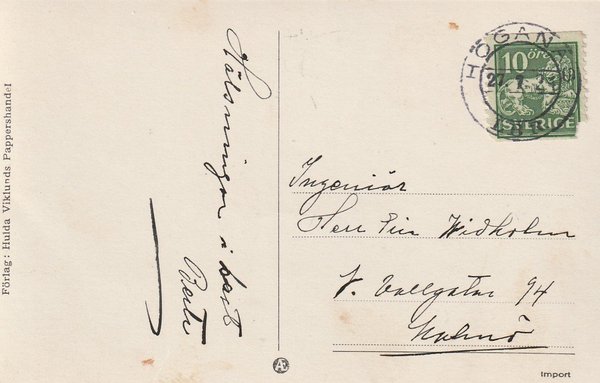 Förlag: Hulda Viklunds Pappershandel
Hälsningar i hast
HÖGANÄS
10 öre
SVERIGE
Ingeniör
Herr Widholm
V. Vallgatan 94
Malmö
Import